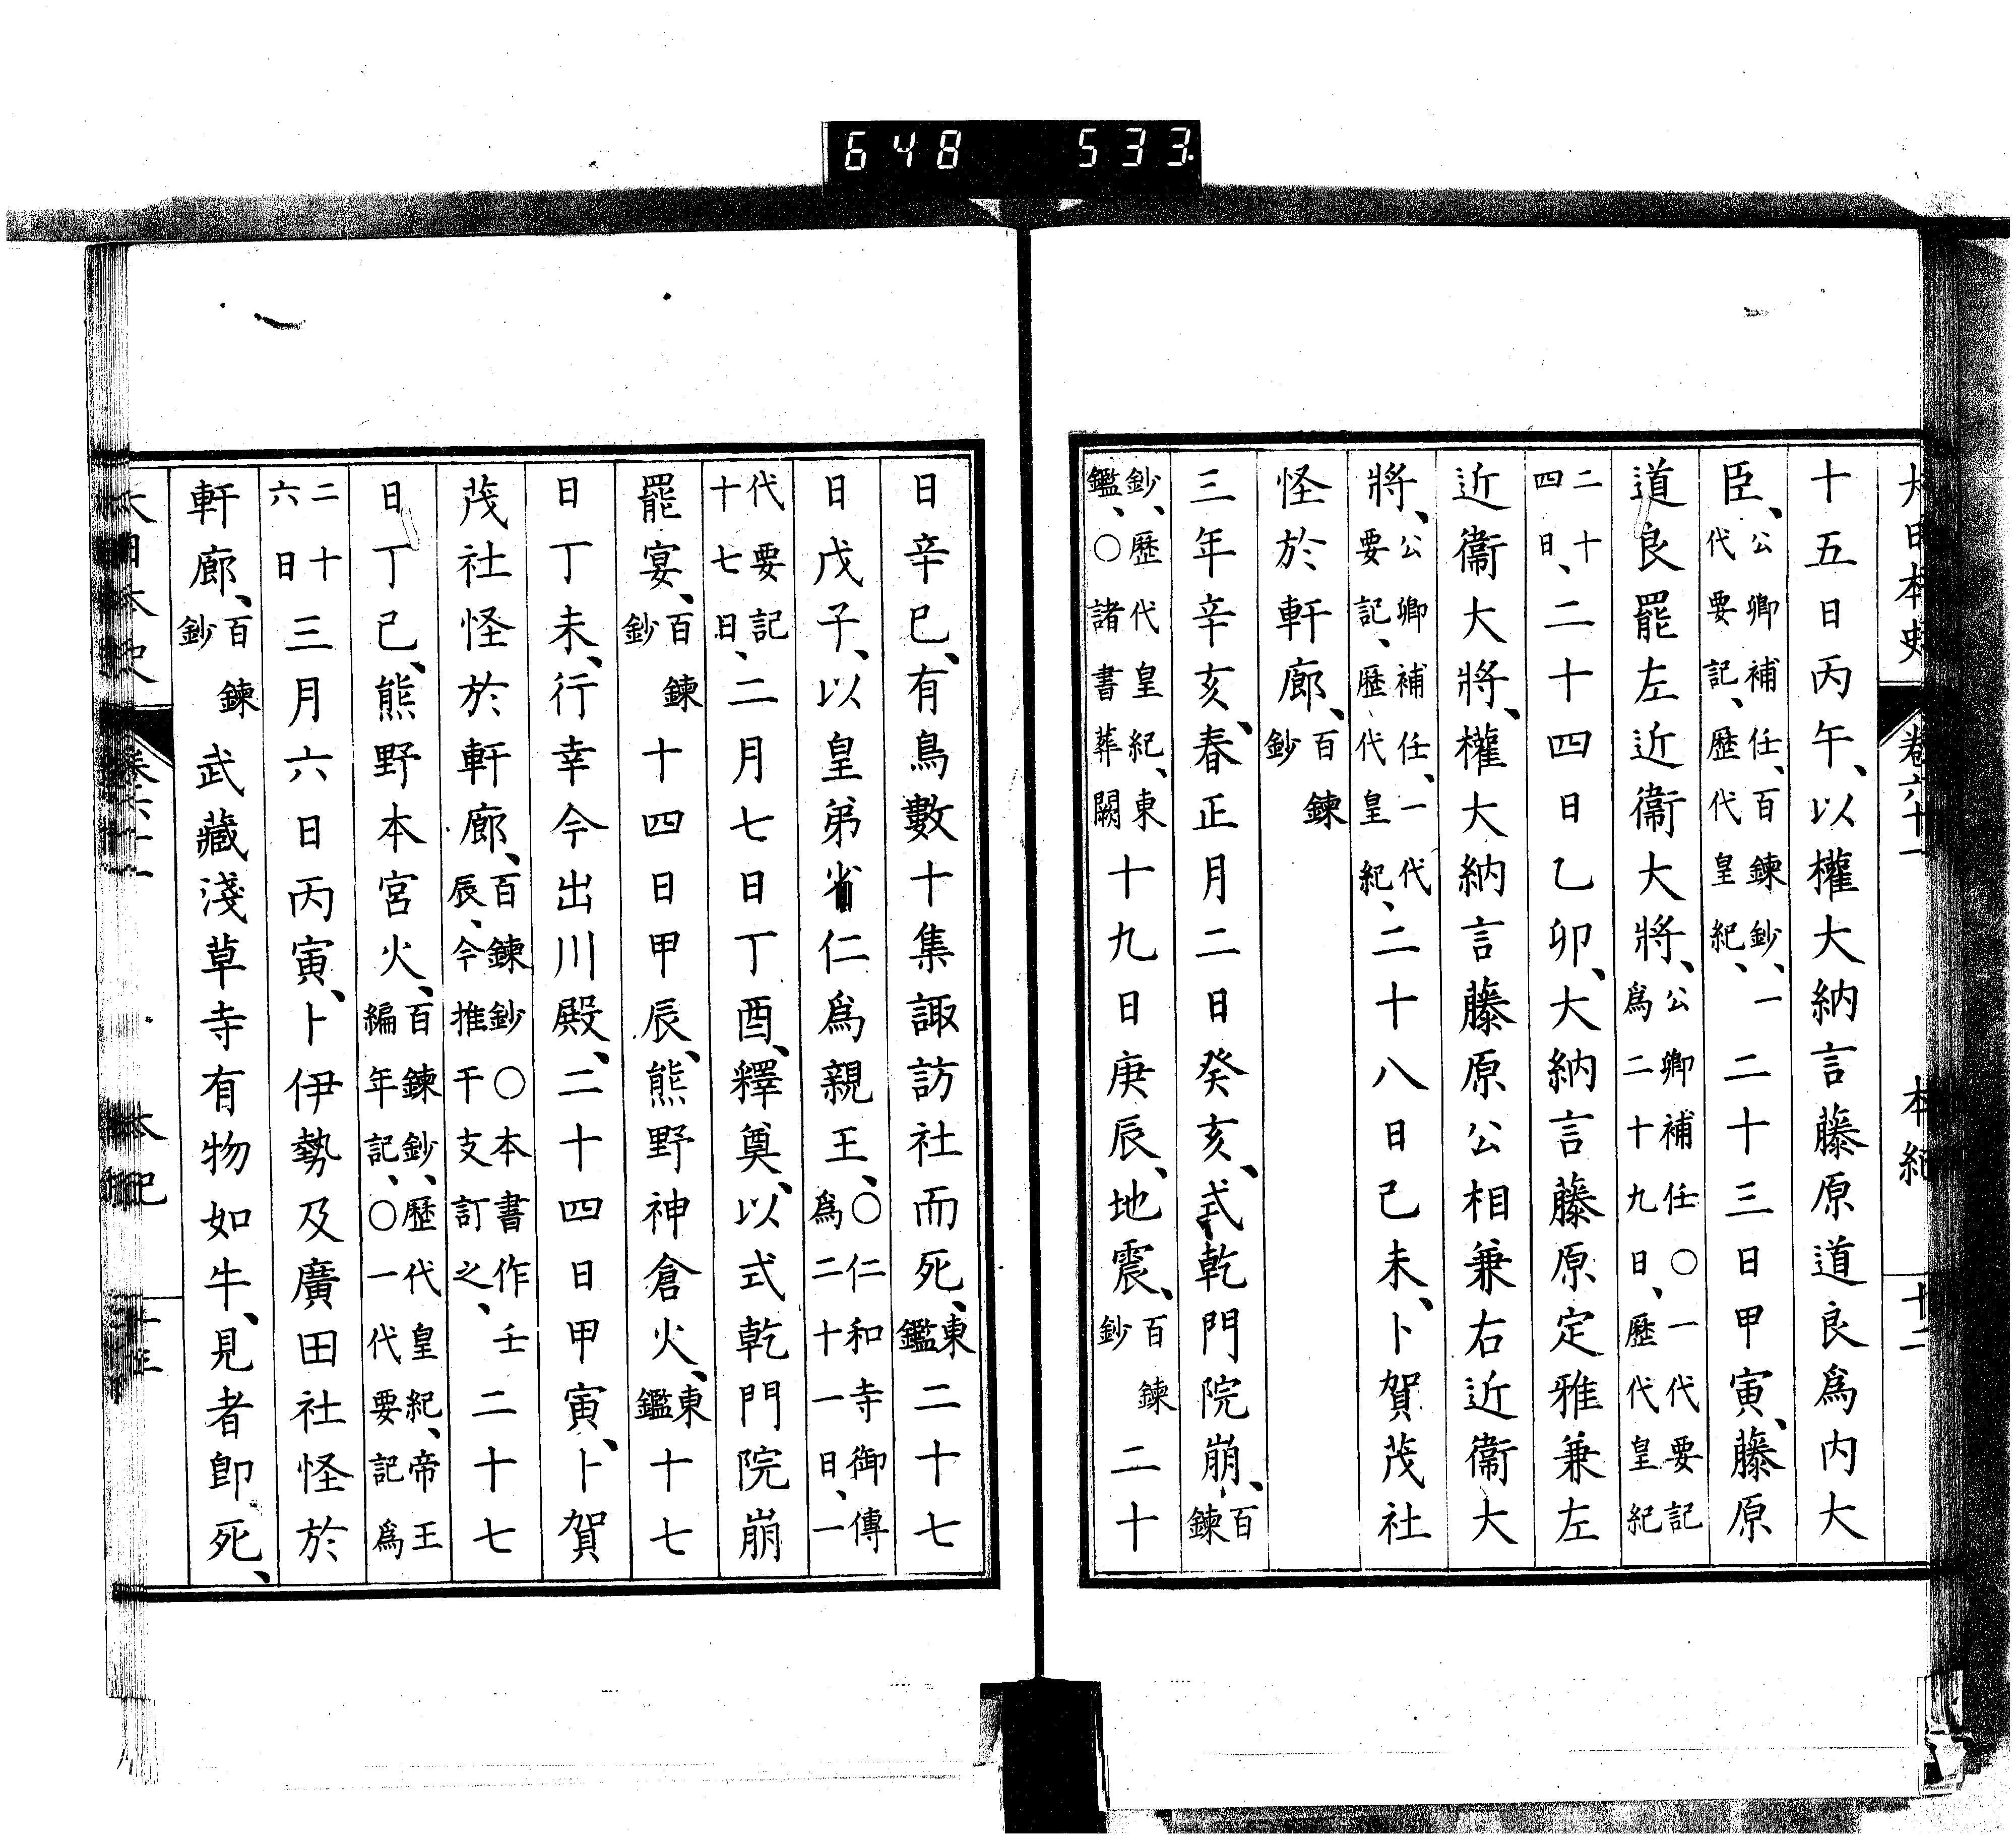 648 533
大日本史 卷六十一 本紀 十二
十五日丙午、以權大納言藤原道良爲内大
臣、公卿補任、百鍊鈔、一代要記、歷代皇紀、二十三日甲寅、藤原
道良罷左近衞大將、公卿補任○一代要記爲二十九日、歷代皇紀
二十四日、二十四日乙卯、大納言藤原定雅兼左
近衞大將、權大納言藤原公相兼右近衞大
將、公卿補任、一代要記、歷代皇紀、二十八日己未、卜賀茂社
怪於軒廊、百鍊鈔
三年辛亥、春正月二日癸亥、式乾門院崩、百鍊
鈔、歷代皇紀、東鑑、○諸書葬闕十九日庚辰、地震、百鍊鈔二十
日辛巳、有鳥數十集諏訪社而死、東鑑二十七
日戊子、以皇弟省仁爲親王、○仁和寺御傳爲二十一日、一
代要記十七日、二月七日丁酉、釋奠、以式乾門院崩
罷宴、百鍊鈔十四日甲辰、熊野神倉火、東鑑十七
日丁未、行幸今出川殿、二十四日甲寅、卜賀
茂社怪於軒廊、百鍊鈔○本書作壬辰、今推干支訂之、二十七
日丁巳、熊野本宮火、百鍊鈔、歷代皇紀、帝王編年記、○一代要記爲
二十六日三月六日丙寅、卜伊勢及廣田社怪於
軒廊、百鍊鈔武藏淺草寺有物如牛、見者卽死、
大日本史 卷六十一 本紀